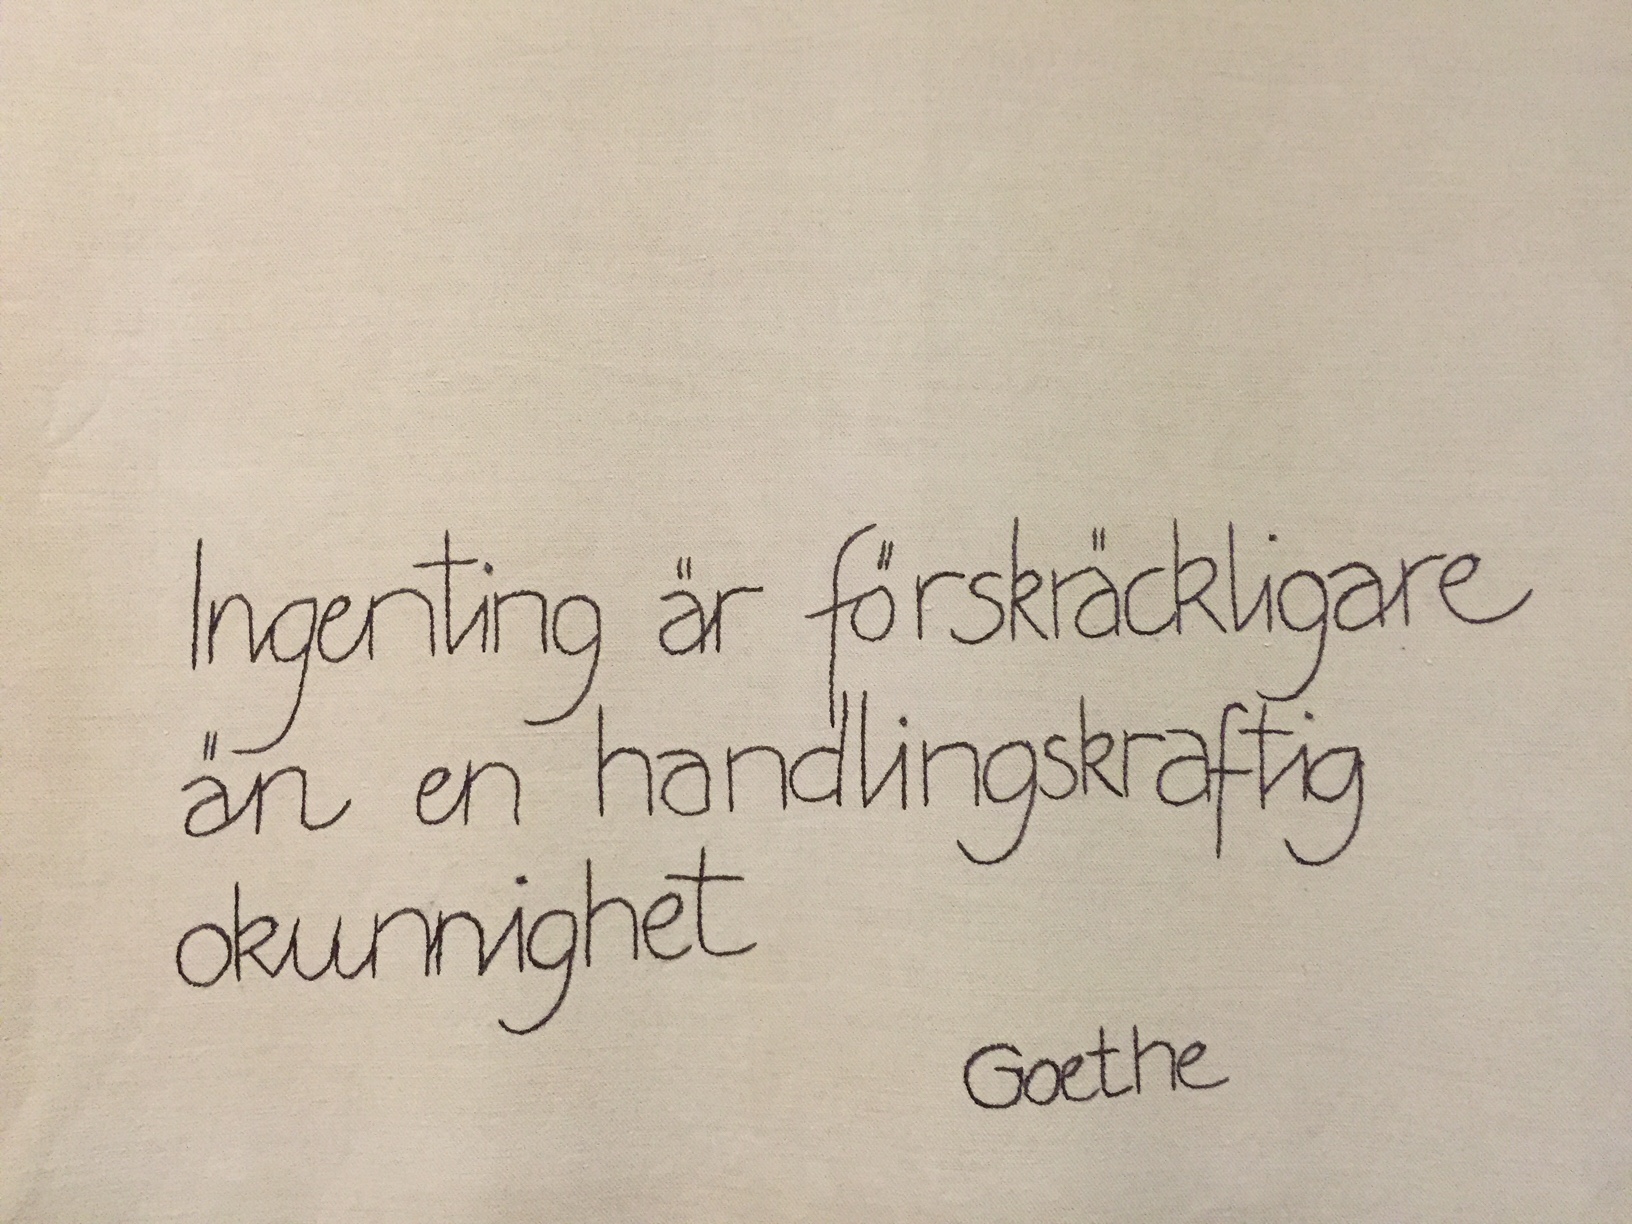 Ingenting är förskräckligare
än en handlingskraftig
okunnighet
Goethe